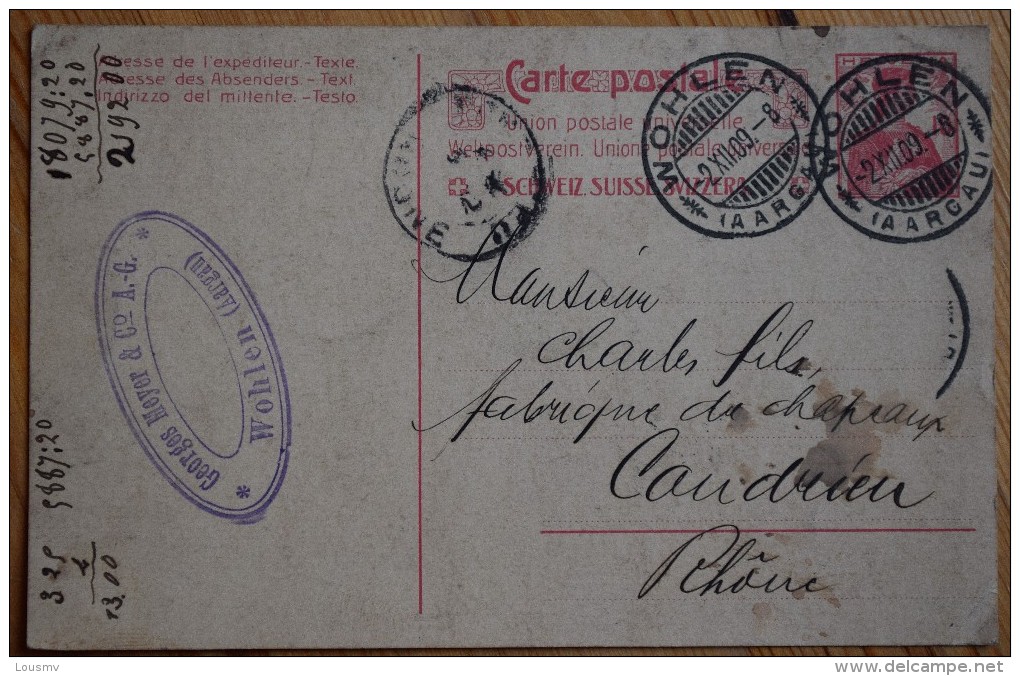 Adresse de l'expéditeur.-Texte.
Adresse des Absenders.-Text.
Indirizzo del mittente.-Testo.
Carte postale
Union postale universelle
Weltpostverein. Unione postale universale
SCHWEIZ. SUISSE. SVIZZERA.
WOHLEN
-2.XII.09.-8
(AARGAU)
WOHLEN
-2.XII.09.-8
(AARGAU)
HELVETIA
RHONE
Georges Meyer & Co. A.-G.
Wohlen (Aargau)
Monsieur
Charles fils,
fabrique de chapeaux
Condrieu
Rhône
18079:20
5887,20
2192.00
5887:20
325
4
13.00
Lousmv
www.delcampe.net